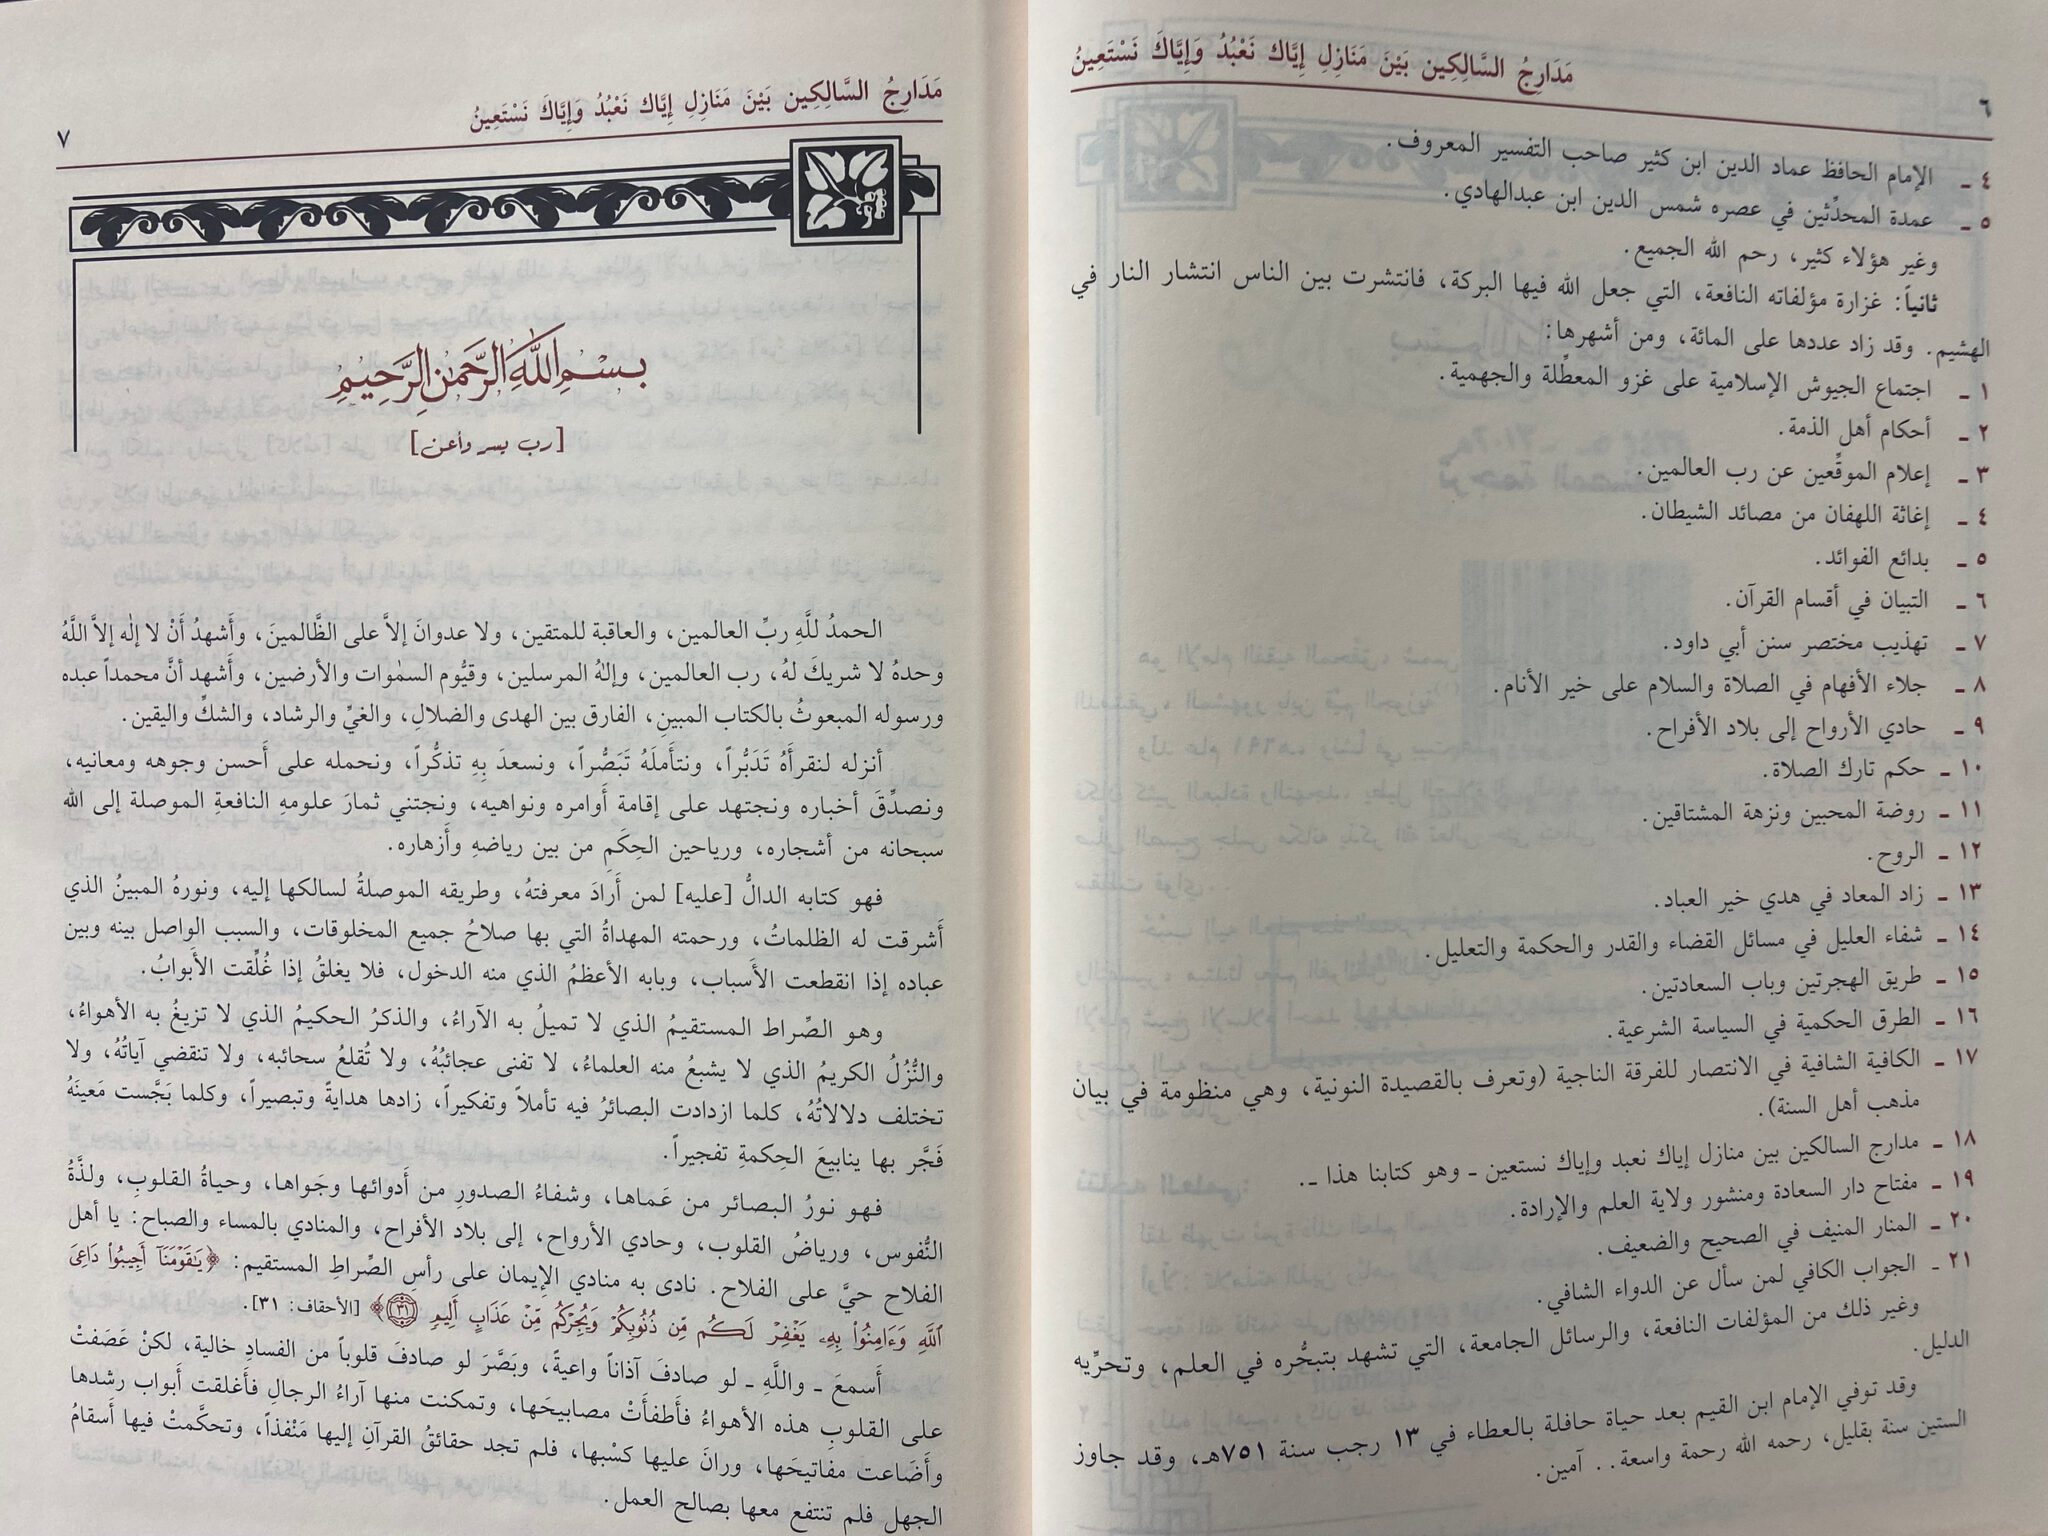 مَدَارِجُ السَّالِكِين بَيْنَ مَنَازِلِ إِيَّاكَ نَعْبُدُ وَإِيَّاكَ نَسْتَعِينُ
٦
٤ ـ الإمام الحافظ عماد الدين ابن كثير صاحب التفسير المعروف.
٥ ـ عمدة المحدِّثين في عصره شمس الدين ابن عبدالهادي.
وغير هؤلاء كثير، رحم الله الجميع.
ثانياً: غزارة مؤلفاته النافعة، التي جعل الله فيها البركة، فانتشرت بين الناس انتشار النار في
الهشيم. وقد زاد عددها على المائة، ومن أشهرها:
١ ـ اجتماع الجيوش الإسلامية على غزو المعطِّلة والجهمية.
٢ ـ أحكام أهل الذمة.
٣ ـ إعلام الموقِّعين عن رب العالمين.
٤ ـ إغاثة اللهفان من مصائد الشيطان.
٥ ـ بدائع الفوائد.
٦ ـ التبيان في أقسام القرآن.
٧ ـ تهذيب مختصر سنن أبي داود.
٨ ـ جلاء الأفهام في الصلاة والسلام على خير الأنام.
٩ ـ حادي الأرواح إلى بلاد الأفراح.
١٠ ـ حكم تارك الصلاة.
١١ ـ روضة المحبين ونزهة المشتاقين.
١٢ ـ الروح.
١٣ ـ زاد المعاد في هدي خير العباد.
١٤ ـ شفاء العليل في مسائل القضاء والقدر والحكمة والتعليل.
١٥ ـ طريق الهجرتين وباب السعادتين.
١٦ ـ الطرق الحكمية في السياسة الشرعية.
١٧ ـ الكافية الشافية في الانتصار للفرقة الناجية (وتعرف بالقصيدة النونية، وهي منظومة في بيان
مذهب أهل السنة).
١٨ ـ مدارج السالكين بين منازل إياك نعبد وإياك نستعين ـ وهو كتابنا هذا ـ.
١٩ ـ مفتاح دار السعادة ومنشور ولاية العلم والإرادة.
٢٠ ـ المنار المنيف في الصحيح والضعيف.
٢١ ـ الجواب الكافي لمن سأل عن الدواء الشافي.
وغير ذلك من المؤلفات النافعة، والرسائل الجامعة، التي تشهد بتبحُّره في العلم، وتحرِّيه
الدليل.
وقد توفي الإمام ابن القيم بعد حياة حافلة بالعطاء في ١٣ رجب سنة ٧٥١هـ، وقد جاوز
الستين سنة بقليل، رحمه الله رحمة واسعة.. آمين.
مَدَارِجُ السَّالِكِين بَيْنَ مَنَازِلِ إِيَّاكَ نَعْبُدُ وَإِيَّاكَ نَسْتَعِينُ
٧
بِسْمِ اللَّهِ الرَّحْمَٰنِ الرَّحِيمِ
[رب يسر وأعن]
الحمدُ للَّهِ ربِّ العالمين، والعاقبة للمتقين، ولا عدوانَ إلاَّ على الظَّالمينَ، وأَشهدُ أَنْ لا إلٰه إلاَّ اللَّهُ
وحدهُ لا شريكَ لهُ، رب العالمين، وإلٰهُ المرسلين، وقيُّوم السمٰوات والأرضين، وأَشهد أنَّ محمداً عبده
ورسوله المبعوثُ بالكتاب المبينِ، الفارق بين الهدى والضلالِ، والغيِّ والرشاد، والشكِّ واليقين.
أنزله لنقرأَهُ تَدَبُّراً، ونتأَملَهُ تَبَصُّراً، ونسعدَ بِهِ تذكُّراً، ونحمله على أَحسن وجوهه ومعانيه،
ونصدِّقَ أخباره ونجتهد على إقامة أَوامره ونواهيه، ونجتني ثمارَ علومهِ النافعةِ الموصلة إلى الله
سبحانه من أشجاره، ورياحين الحِكَمِ من بين رياضهِ وأَزهاره.
فهو كتابه الدالُّ [عليه] لمن أَرادَ معرفتهُ، وطريقه الموصلةُ لسالكها إليه، ونورهُ المبينُ الذي
أَشرقت له الظلماتُ، ورحمته المهداةُ التي بها صلاحُ جميع المخلوقات، والسبب الواصل بينه وبين
عباده إذا انقطعت الأَسباب، وبابه الأعظمُ الذي منه الدخول، فلا يغلقُ إذا غُلِّقت الأَبوابُ.
وهو الصِّراط المستقيمُ الذي لا تميلُ به الآراءُ، والذكرُ الحكيمُ الذي لا تزيغُ به الأهواءُ،
والنُّزُلُ الكريمُ الذي لا يشبعُ منه العلماءُ، لا تفنى عجائبُهُ، ولا تُقلعُ سحائبه، ولا تنقضي آياتُهُ، ولا
تختلف دلالاتُهُ، كلما ازدادت البصائرُ فيه تأملاً وتفكيراً، زادها هدايةً وتبصيراً، وكلما بَجَّست مَعينَهُ
فَجَّر بها ينابيعَ الحِكمةِ تفجيراً.
فهو نورُ البصائر من عَماها، وشفاءُ الصدورِ من أَدوائها وجَواها، وحياةُ القلوبِ، ولذَّةُ
النُّفوس، ورياضُ القلوب، وحادي الأرواح، إلى بلاد الأفراح، والمنادي بالمساء والصباح: يا أهل
الفلاح حيَّ على الفلاح. نادى به منادي الإيمان على رأسِ الصِّراطِ المستقيم: ﴿يَٰقَوْمَنَآ أَجِيبُوا۟ دَاعِىَ
ٱللَّهِ وَءَامِنُوا۟ بِهِۦ يَغْفِرْ لَكُم مِّن ذُنُوبِكُمْ وَيُجِرْكُم مِّنْ عَذَابٍ أَلِيمٍ ٣١﴾ [الأحقاف: ٣١].
أَسمعَ ـ واللَّهِ ـ لو صادفَ آذاناً واعيةً، وبَصَّرَ لو صادفَ قلوباً من الفسادِ خالية، لكنْ عَصَفتْ
على القلوبِ هذه الأهواءُ فأَطفأَتْ مصابيحَها، وتمكنت منها آراءُ الرجالِ فأَغلقت أَبواب رشدها
وأَضَاعت مفاتيحَها، ورانَ عليها كسْبها، فلم تجد حقائقُ القرآنِ إليها مَنْفذاً، وتحكَّمتْ فيها أَسقامُ
الجهل فلم تنتفع معها بصالح العمل.